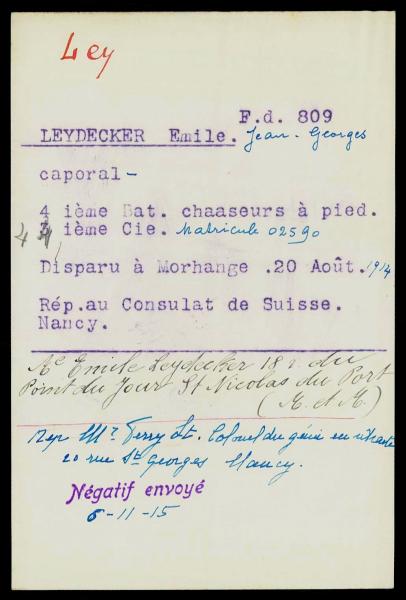 Ley
F.d. 809
LEYDECKER Emile. Jean-Georges
caporal-
4 ième Bat. chaaseurs à pied.
4 ième Cie. Matricule 02590
Disparu à Morhange .20 Août. 1914
Rép.au Consulat de Suisse.
Nancy.
Mr Emile Leydecker 18 r. du
Point du Jour St Nicolas du Port
(M. et M.)
Rep Mr Ferry Lt. Colonel du génie en retraite
20 rue St Georges Nancy.
Négatif envoyé
6-11-15